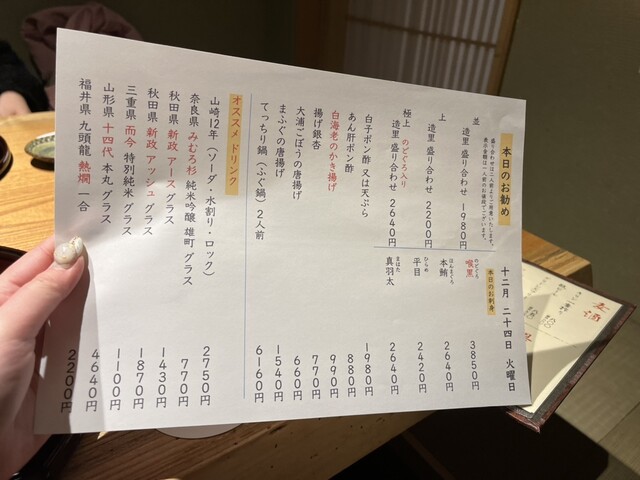 十二月 二十四日 火曜日
本日のお勧め
盛り合わせは二人前よりご用意いたします。
表示金額は一人前のお値段でございます。
並 造里 盛り合わせ 1980円
上 造里 盛り合わせ 2200円
極上 のどぐろ入り 造里 盛り合わせ 2640円
本日のお刺身
喉黒 のどぐろ 3850円
本鮪 ほんまぐろ 2640円
平目 ひらめ 2420円
真羽太 まはた 2640円
白子ポン酢 又は天ぷら 1980円
あん肝ポン酢
白海老のかき揚げ 990円
揚げ銀杏 770円
大浦ごぼうの唐揚げ 660円
まふぐの唐揚げ 1540円
てっちり鍋(ふぐ鍋) 2人前 6160円
オススメ ドリンク
山崎12年(ソーダ・水割り・ロック) 2750円
奈良県 みむろ杉 純米吟醸 雄町 グラス 770円
秋田県 新政 アース グラス 1430円
秋田県 新政 アッシュ グラス 1870円
三重県 而今 特別純米 グラス 1100円
山形県 十四代 本丸 グラス 4640円
福井県 九頭龍 熱燗 一合 2200円